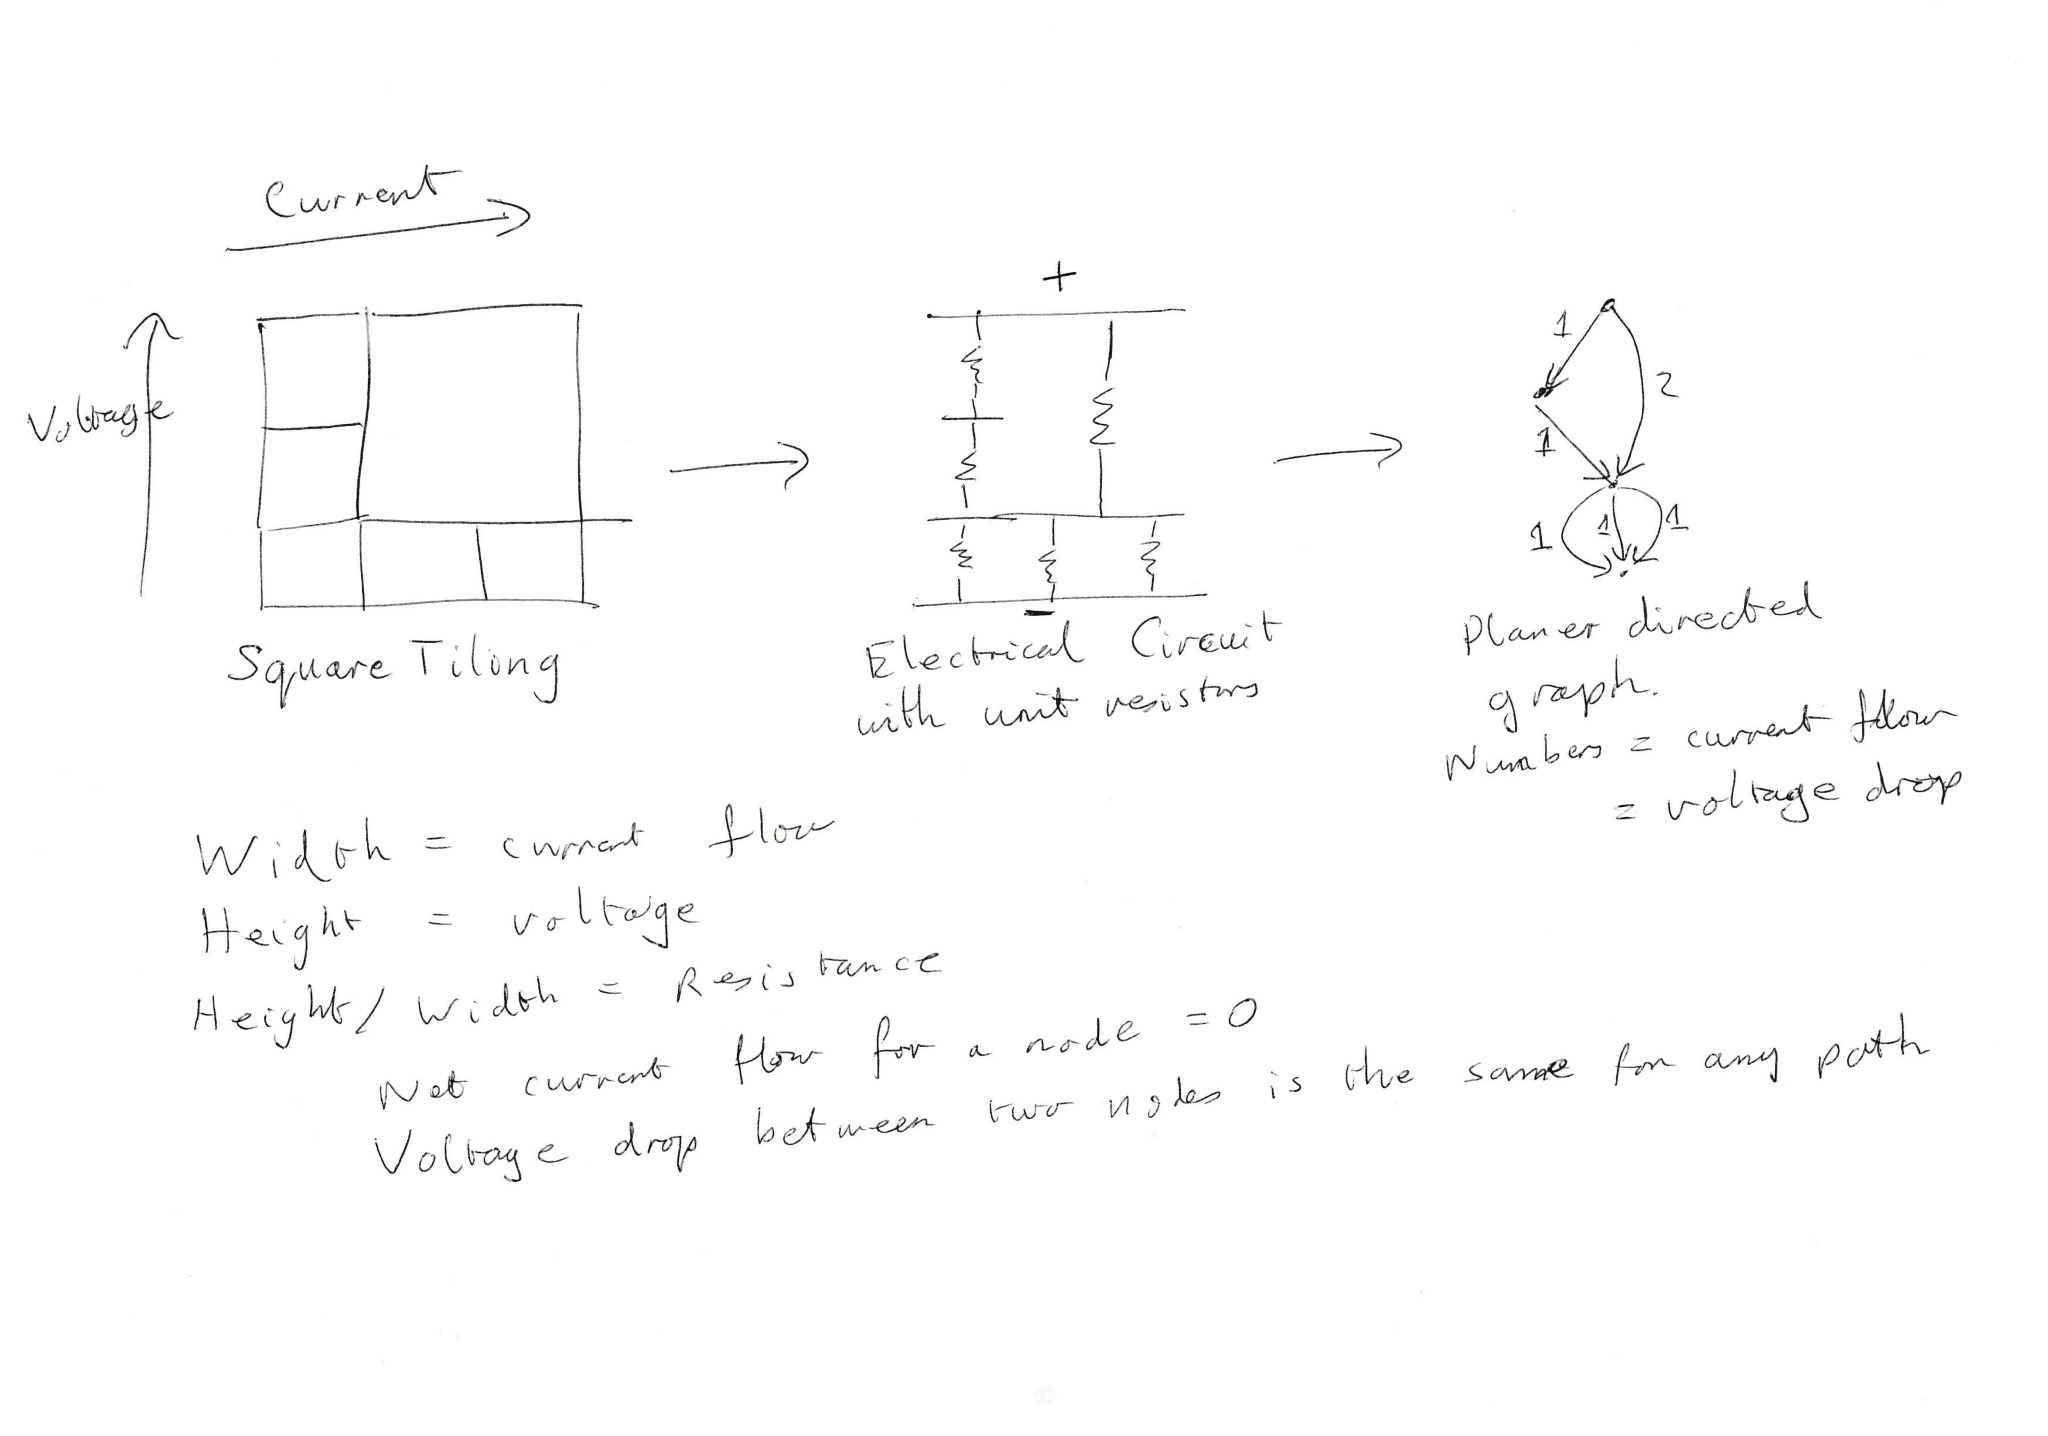 Current
Voltage
+
1
2
1
1
1
1
-
Square Tilong
Electrical Circuit
with unit resistors
Planer directed
graph.
Numbers = current flow
= voltage drop
Width = current flow
Height = voltage
Height/Width = Resistance
Net current flow for a node = 0
Voltage drop between two nodes is the same for any path